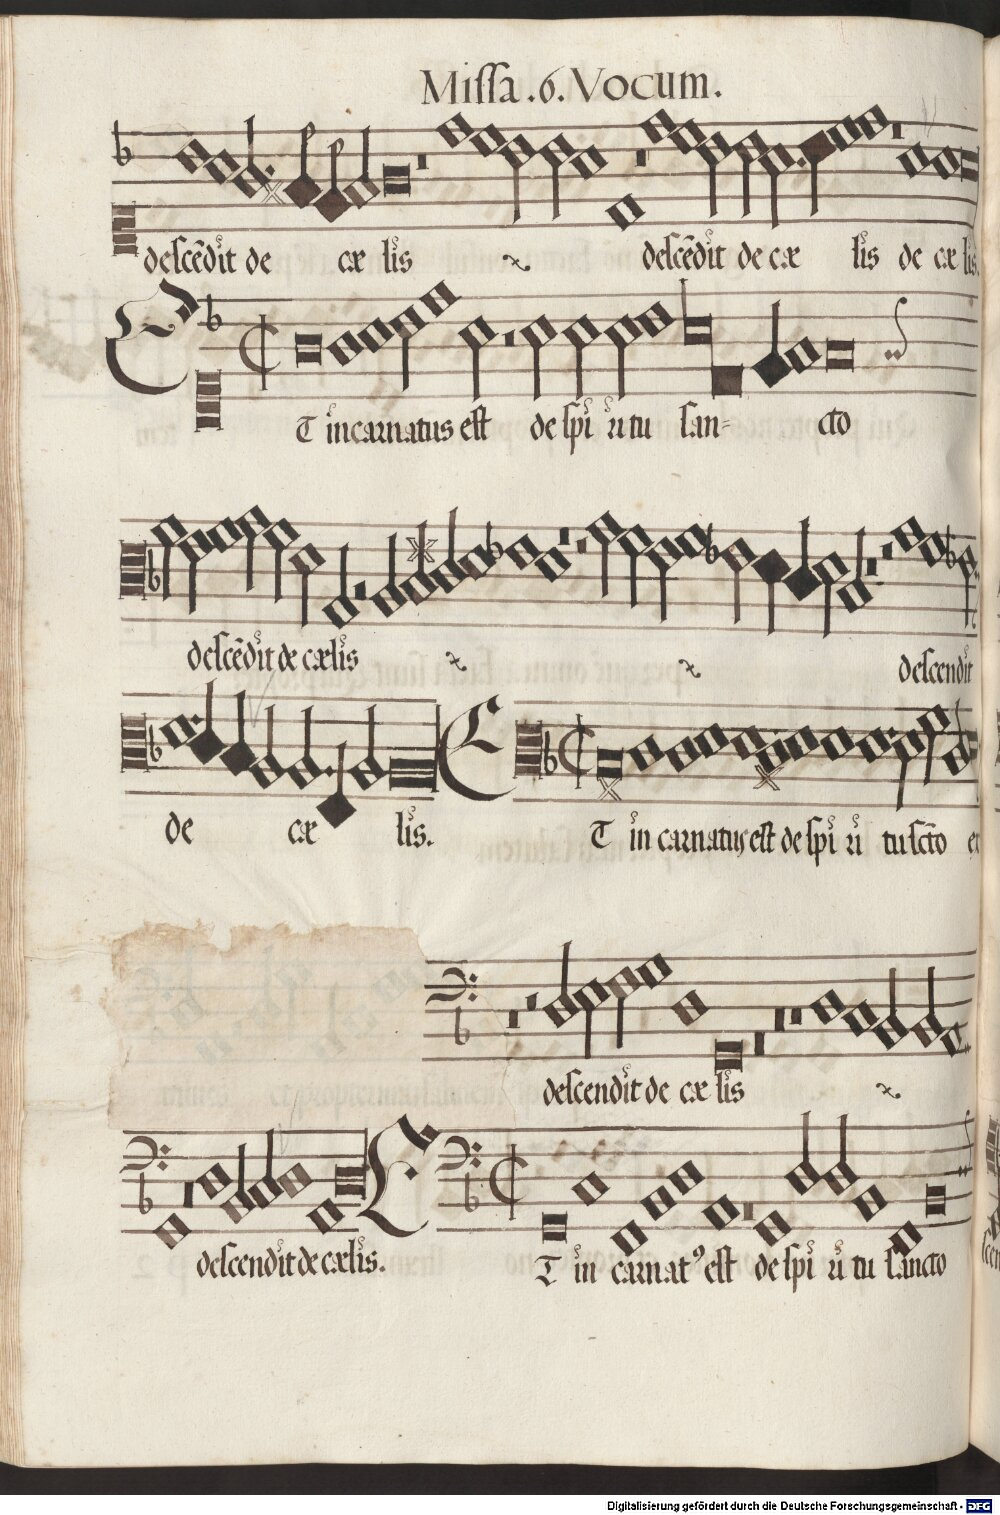 Missa .6. Vocum.
descēdit de cæ lis descēdit de cæ lis de cæ lis.
ET incarnatus est de spi ri tu san- cto
descēdit de cælis descendit
de cæ lis. ET in carnatus est de spi ri tu scto et
descendit de cæ lis
descendit de cælis. ET in carnat⁹ est de spi ri tu sancto
Digitalisierung gefördert durch die Deutsche Forschungsgemeinschaft - DFG